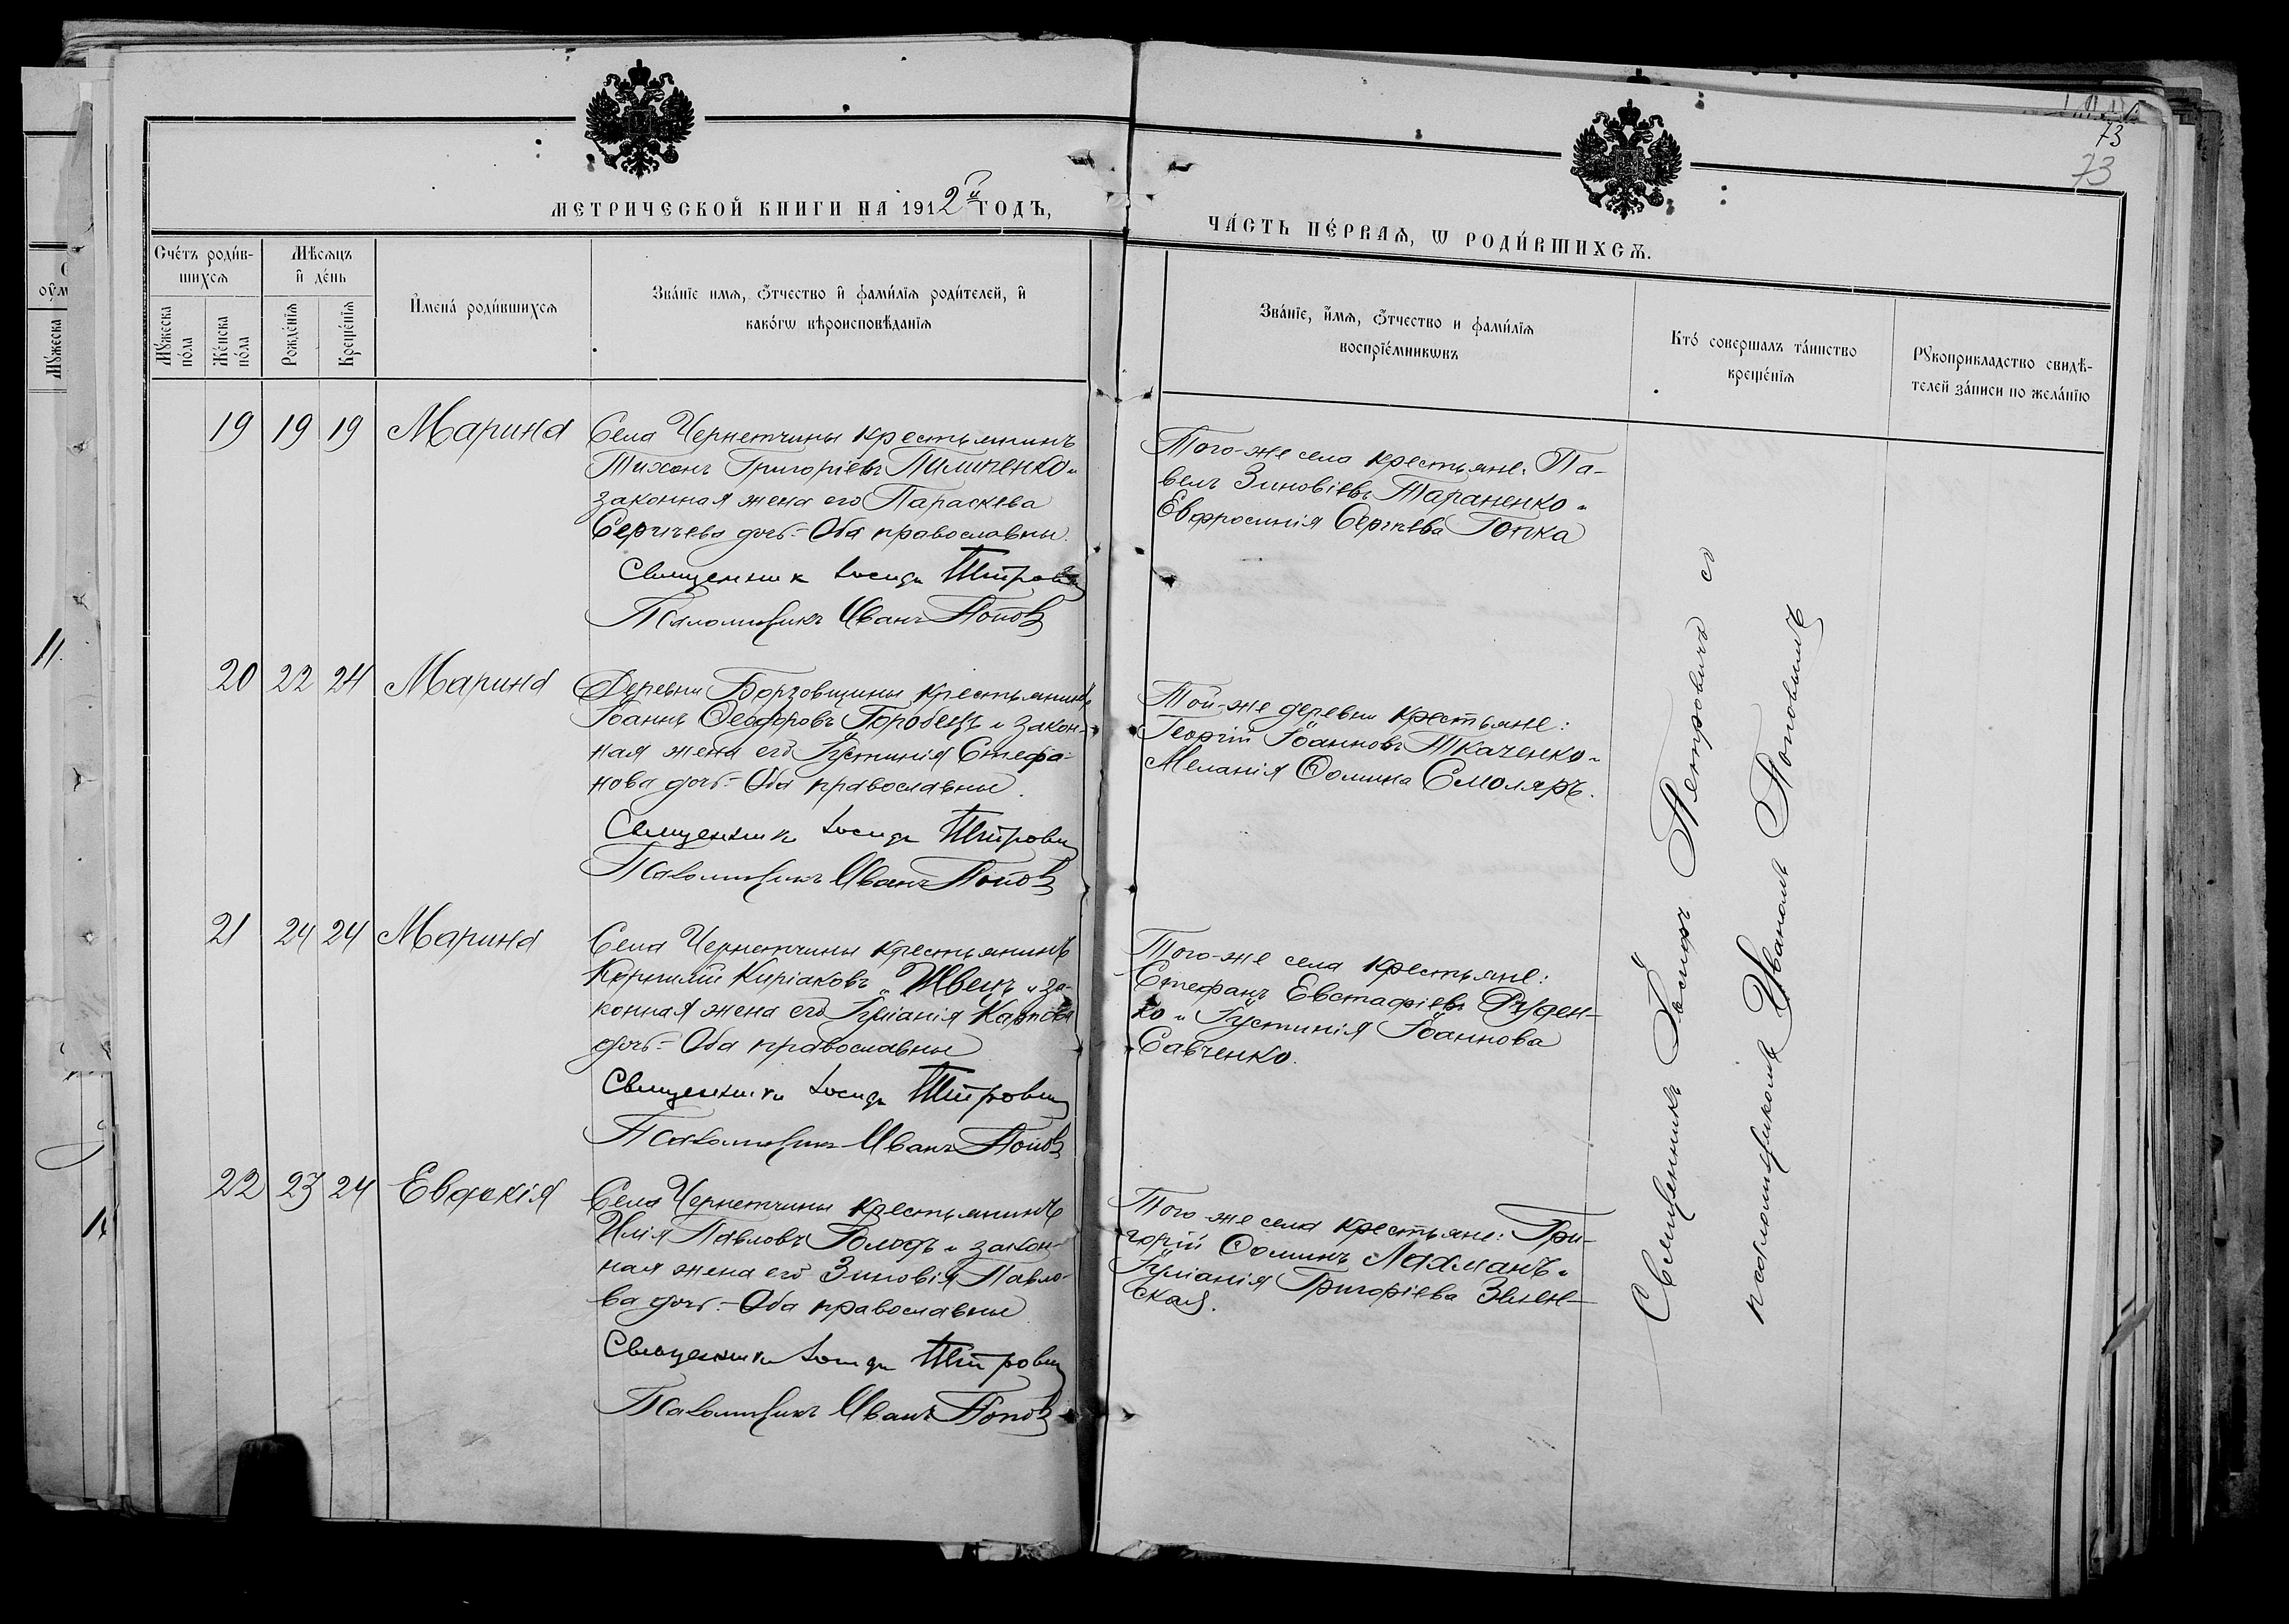 73
73
МЕТРИЧЕСКОЙ КНИГИ НА 1912й ГОДЪ,
ЧА́СТЬ ПЕ́РВАѦ, Ѡ РОДИ́ВШИХСѦ.
Сче́тъ роди́в-
шихсѧ
Мѣ́сѧцъ
и҆ де́нь
Мꙋ́жеска по́ла
Же́нска по́ла
Рожде́нїѧ
Креще́нїѧ
И҆мена̀ роди́вшихсѧ
Зва́нїе имѧ, ѻ҆́тчество и҆ фами́лїѧ роди́телей, и҆
како́гѡ вѣроисповѣ́данїѧ
Зва́нїе, и҆́мѧ, ѻ҆́тчество и фами́лїѧ
воспрїе́мникѡвъ
Кто́ соверша́лъ та́инство
креще́нїѧ
Рꙋкоприкладство свидѣ́-
телей за́писи по жела́нїю
19 19 19 Марина
Села Чернетчины крестьянинъ
Тихонъ Григоріевъ Пилипенко и
законная жена его Параскева
Сергіева дочь - Оба православны.
Священник Іосифъ Петрович
Псаломщикъ Иванъ Попов
Того-же села крестьяне: Па-
велъ Зиновіевъ Тараненко и
Евфросинія Сергіева Гопка
20 22 24 Марина
Деревни Борзовщины крестьянинъ
Іоаннъ Ѳеодоровъ Горобецъ и закон-
ная жена его Іустинія Стефа-
нова дочь - Оба православны.
Священник Іосифъ Петрович
Псаломщикъ Иванъ Попов
Той-же деревни крестьяне:
Георгій Іоанновъ Ткаченко и
Меланія Ѳомина Смоляръ.
21 24 24 Марина
Села Чернетчины крестьянинъ
Корнилій Киріаковъ Швецъ и за-
конная жена его Іуліанія Карпова
дочь - Оба православны
Священник Іосифъ Петрович
Псаломщикъ Иванъ Попов
Того-же села крестьяне:
Стефанъ Евстафіевъ Руден-
ко и Іустинія Іоаннова
Савченко.
22 23 24 Евдокія
Села Чернетчины крестьянинъ
Илія Павловъ Голодъ и закон-
ная жена его Зиновія Павло-
ва дочь - Оба православны.
Священник Іосифъ Петрович
Псаломщикъ Иванъ Попов
Того же села крестьяне: Гри-
горій Ѳоминъ Лахманъ и
Іуліанія Григоріева Зелен-
ская.
Священникъ Іосифъ Петровичъ съ
псаломщикомъ Иваномъ Поповымъ
11.